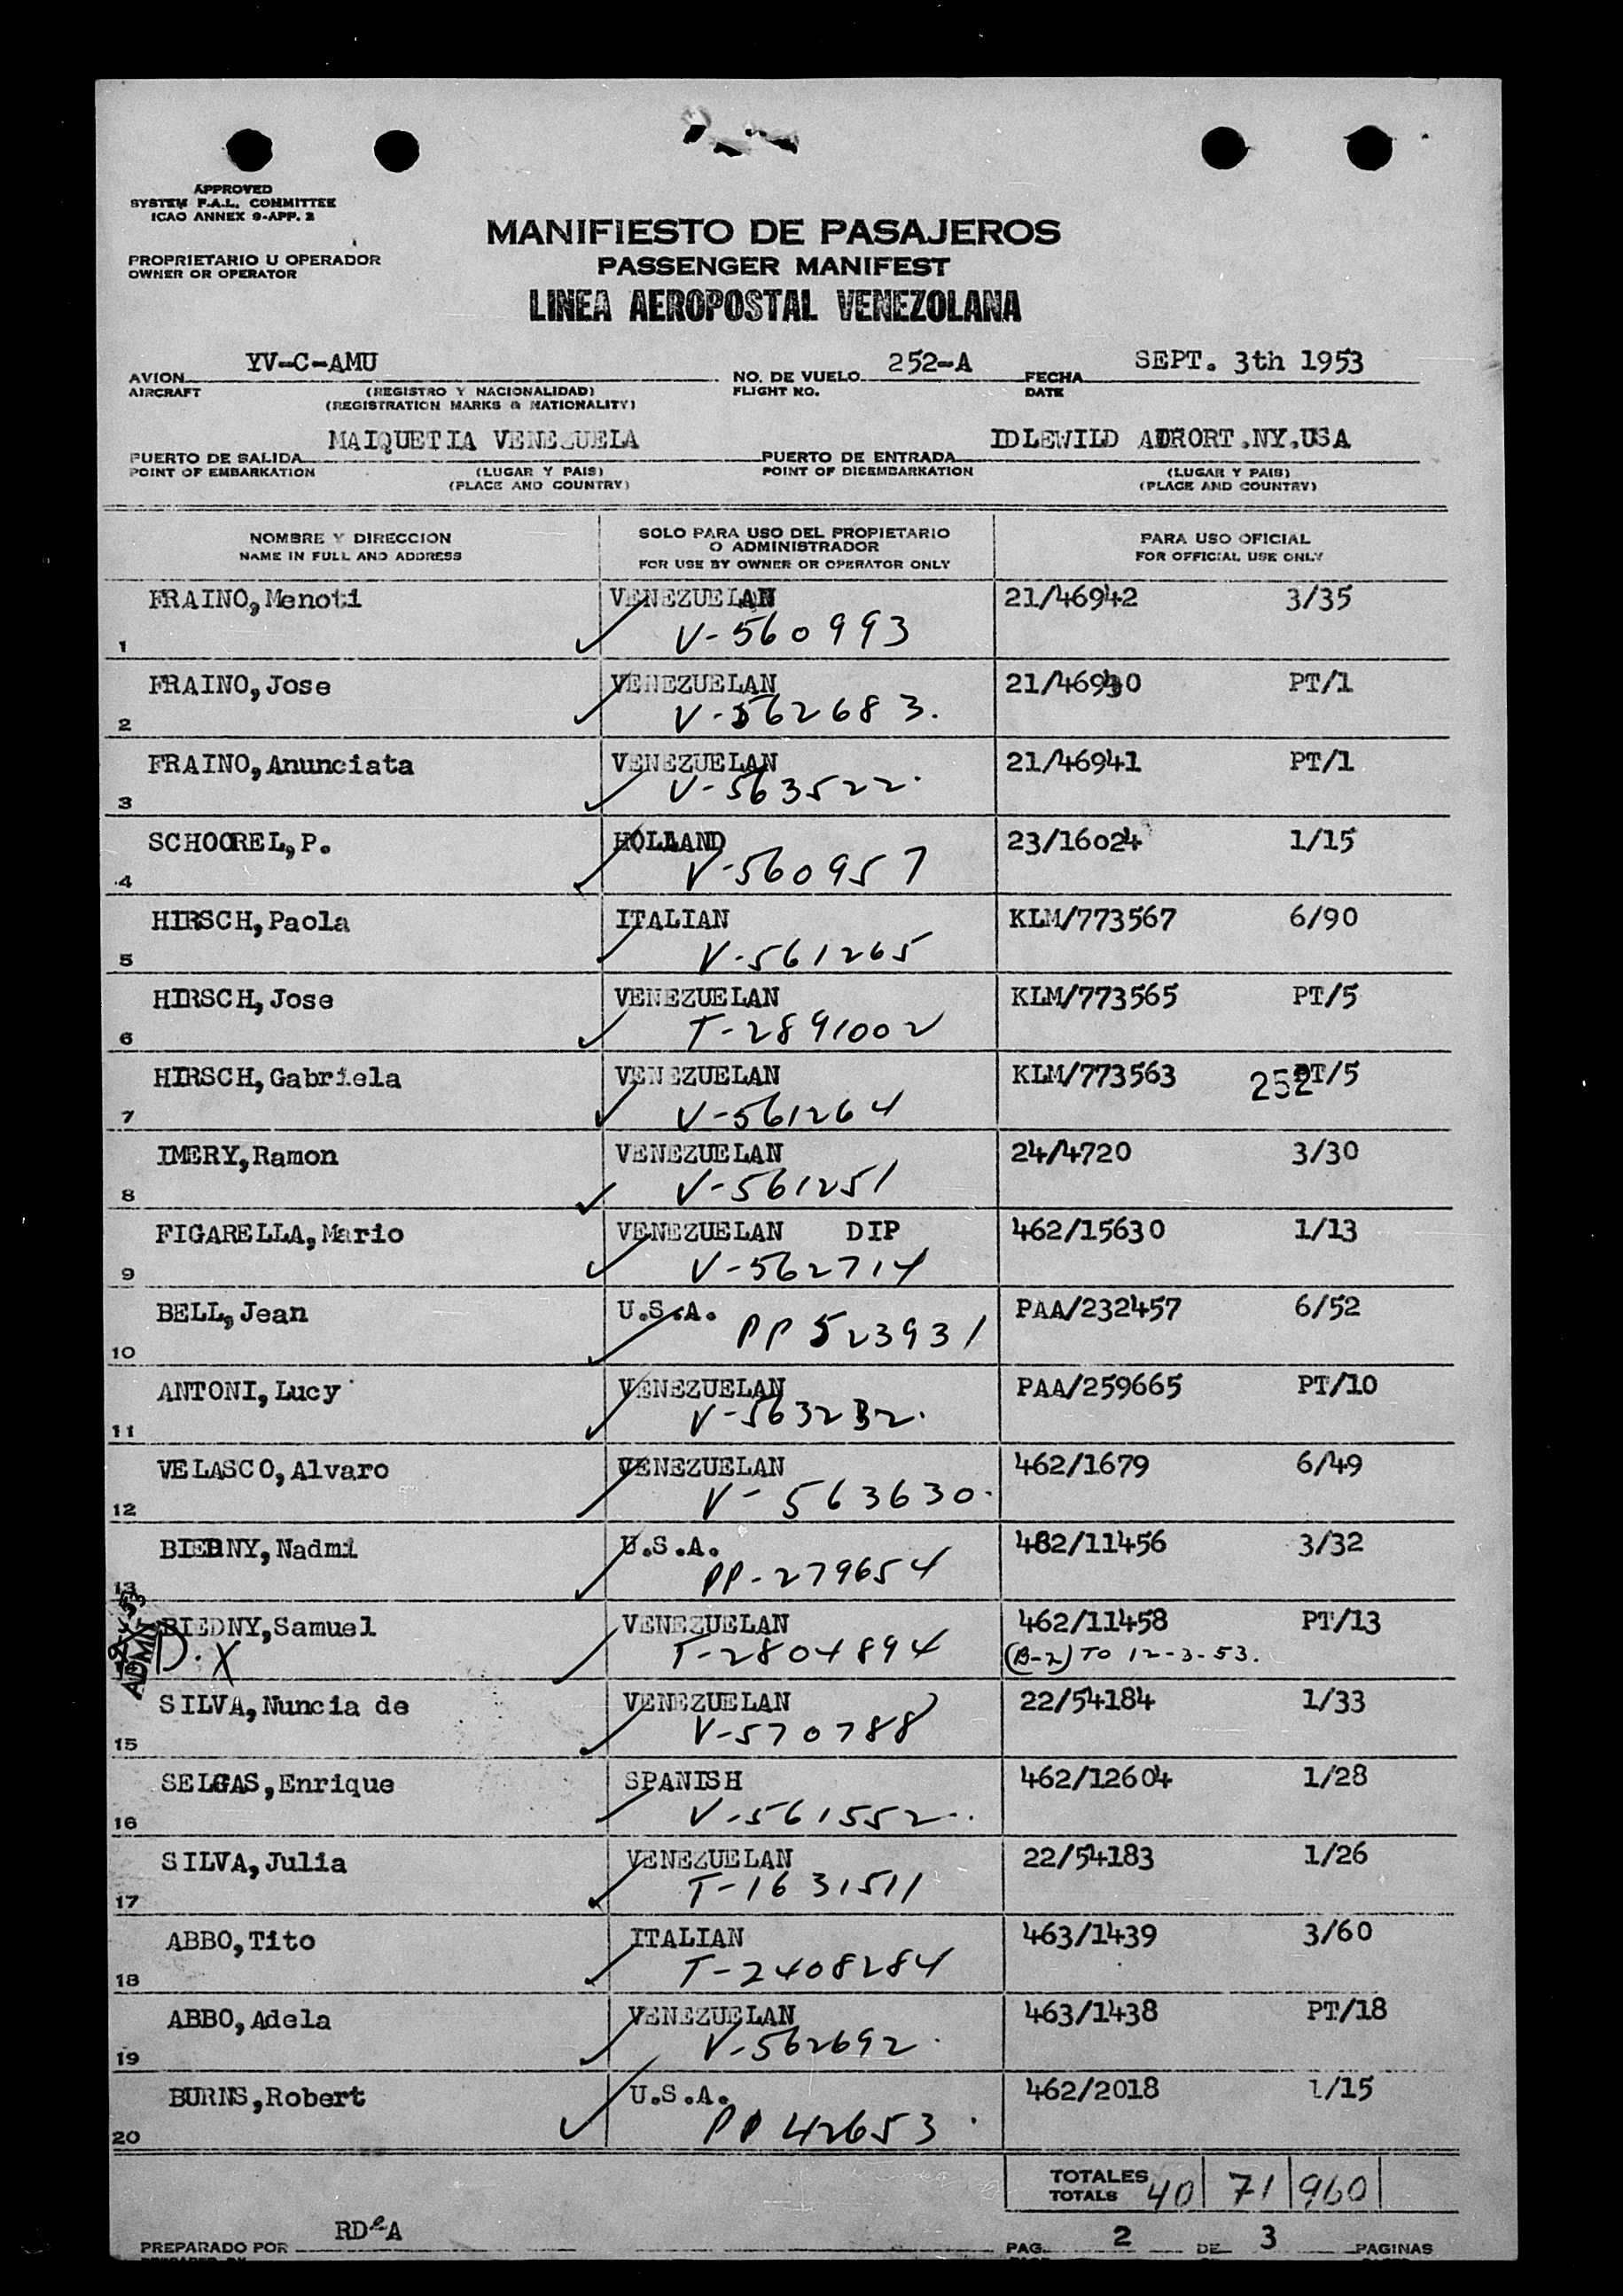 APPROVED
SYSTEM F.A.L. COMMITTEE
ICAO ANNEX 9-APP. 2
MANIFIESTO DE PASAJEROS
PROPRIETARIO U OPERADOR
OWNER OR OPERATOR
PASSENGER MANIFEST
LINEA AEROPOSTAL VENEZOLANA
AVION YV-C-AMU NO. DE VUELO 252-A FECHA SEPT. 3th 1953
AIRCRAFT (REGISTRO Y NACIONALIDAD) FLIGHT NO. DATE
(REGISTRATION MARKS & NATIONALITY)
PUERTO DE SALIDA MAIQUETIA VENEZUELA PUERTO DE ENTRADA IDLEWILD .NY.USA
POINT OF EMBARKATION (LUGAR Y PAIS) POINT OF DISEMBARKATION (LUGAR Y PAIS)
(PLACE AND COUNTRY) (PLACE AND COUNTRY)
NOMBRE Y DIRECCION SOLO PARA USO DEL PROPIETARIO O ADMINISTRADOR PARA USO OFICIAL
NAME IN FULL AND ADDRESS FOR USE BY OWNER OR OPERATOR ONLY FOR OFFICIAL USE ONLY
FRAINO, Menoti VENEZUELAN 21/46942 3/35
1 V-560993
FRAINO, Jose VENEZUELAN PT/1
2 V-562683.
FRAINO, Anunciata VENEZUELAN 21/46941 PT/1
3 V-563522.
SCHOOREL, P. HOLLAND 23/16024 1/15
4 V-560957
HIRSCH, Paola ITALIAN KLM/773567 6/90
5 V-561265
HIRSCH, Jose VENEZUELAN KLM/773565 PT/5
6 T-2891002
HIRSCH, Gabriela VENEZUELAN KLM/773563 252 PT/5
7 V-561264
IMERY, Ramon VENEZUELAN 24/4720 3/30
8 V-561251
FIGARELLA, Mario VENEZUELAN DIP 462/15630 1/13
9 V-562714
BELL, Jean U.S.A. PAA/232457 6/52
10 PP 523931
ANTONI, Lucy VENEZUELAN PAA/259665 PT/10
11 V-563232.
VELASCO, Alvaro VENEZUELAN 462/1679 6/49
12 V-563630.
BIEDNY, Nadmi U.S.A. 482/11456 3/32
13 PP-279654
BIEDNY, Samuel VENEZUELAN 462/11458 PT/13
ADMIT D.X T-2804894 (B-2) TO 12-3-53.
SILVA, Nuncia de VENEZUELAN 22/54184 1/33
15 V-570788
SELGAS, Enrique SPANISH 462/12604 1/28
16 V-561552.
SILVA, Julia VENEZUELAN 22/54183 1/26
17 T-1631511
ABBO, Tito ITALIAN 463/1439 3/60
18 T-2408284
ABBO, Adela VENEZUELAN 463/1438 PT/18
19 V-562692.
BURNS, Robert U.S.A. 462/2018 1/15
20 PP 42653.
TOTALES
TOTALS 40 71 960
PREPARADO POR RDeA PAG. 2 DE 3 PAGINAS